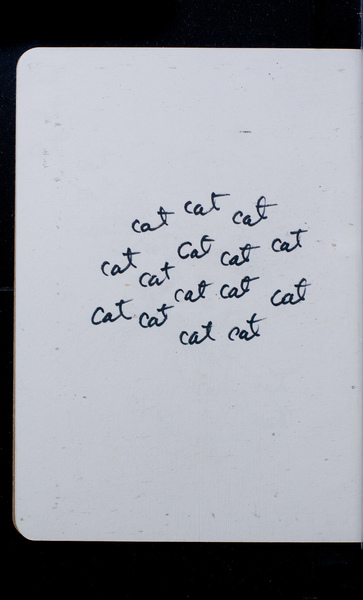 cat cat cat
cat cat cat cat cat
cat cat cat cat cat
cat cat